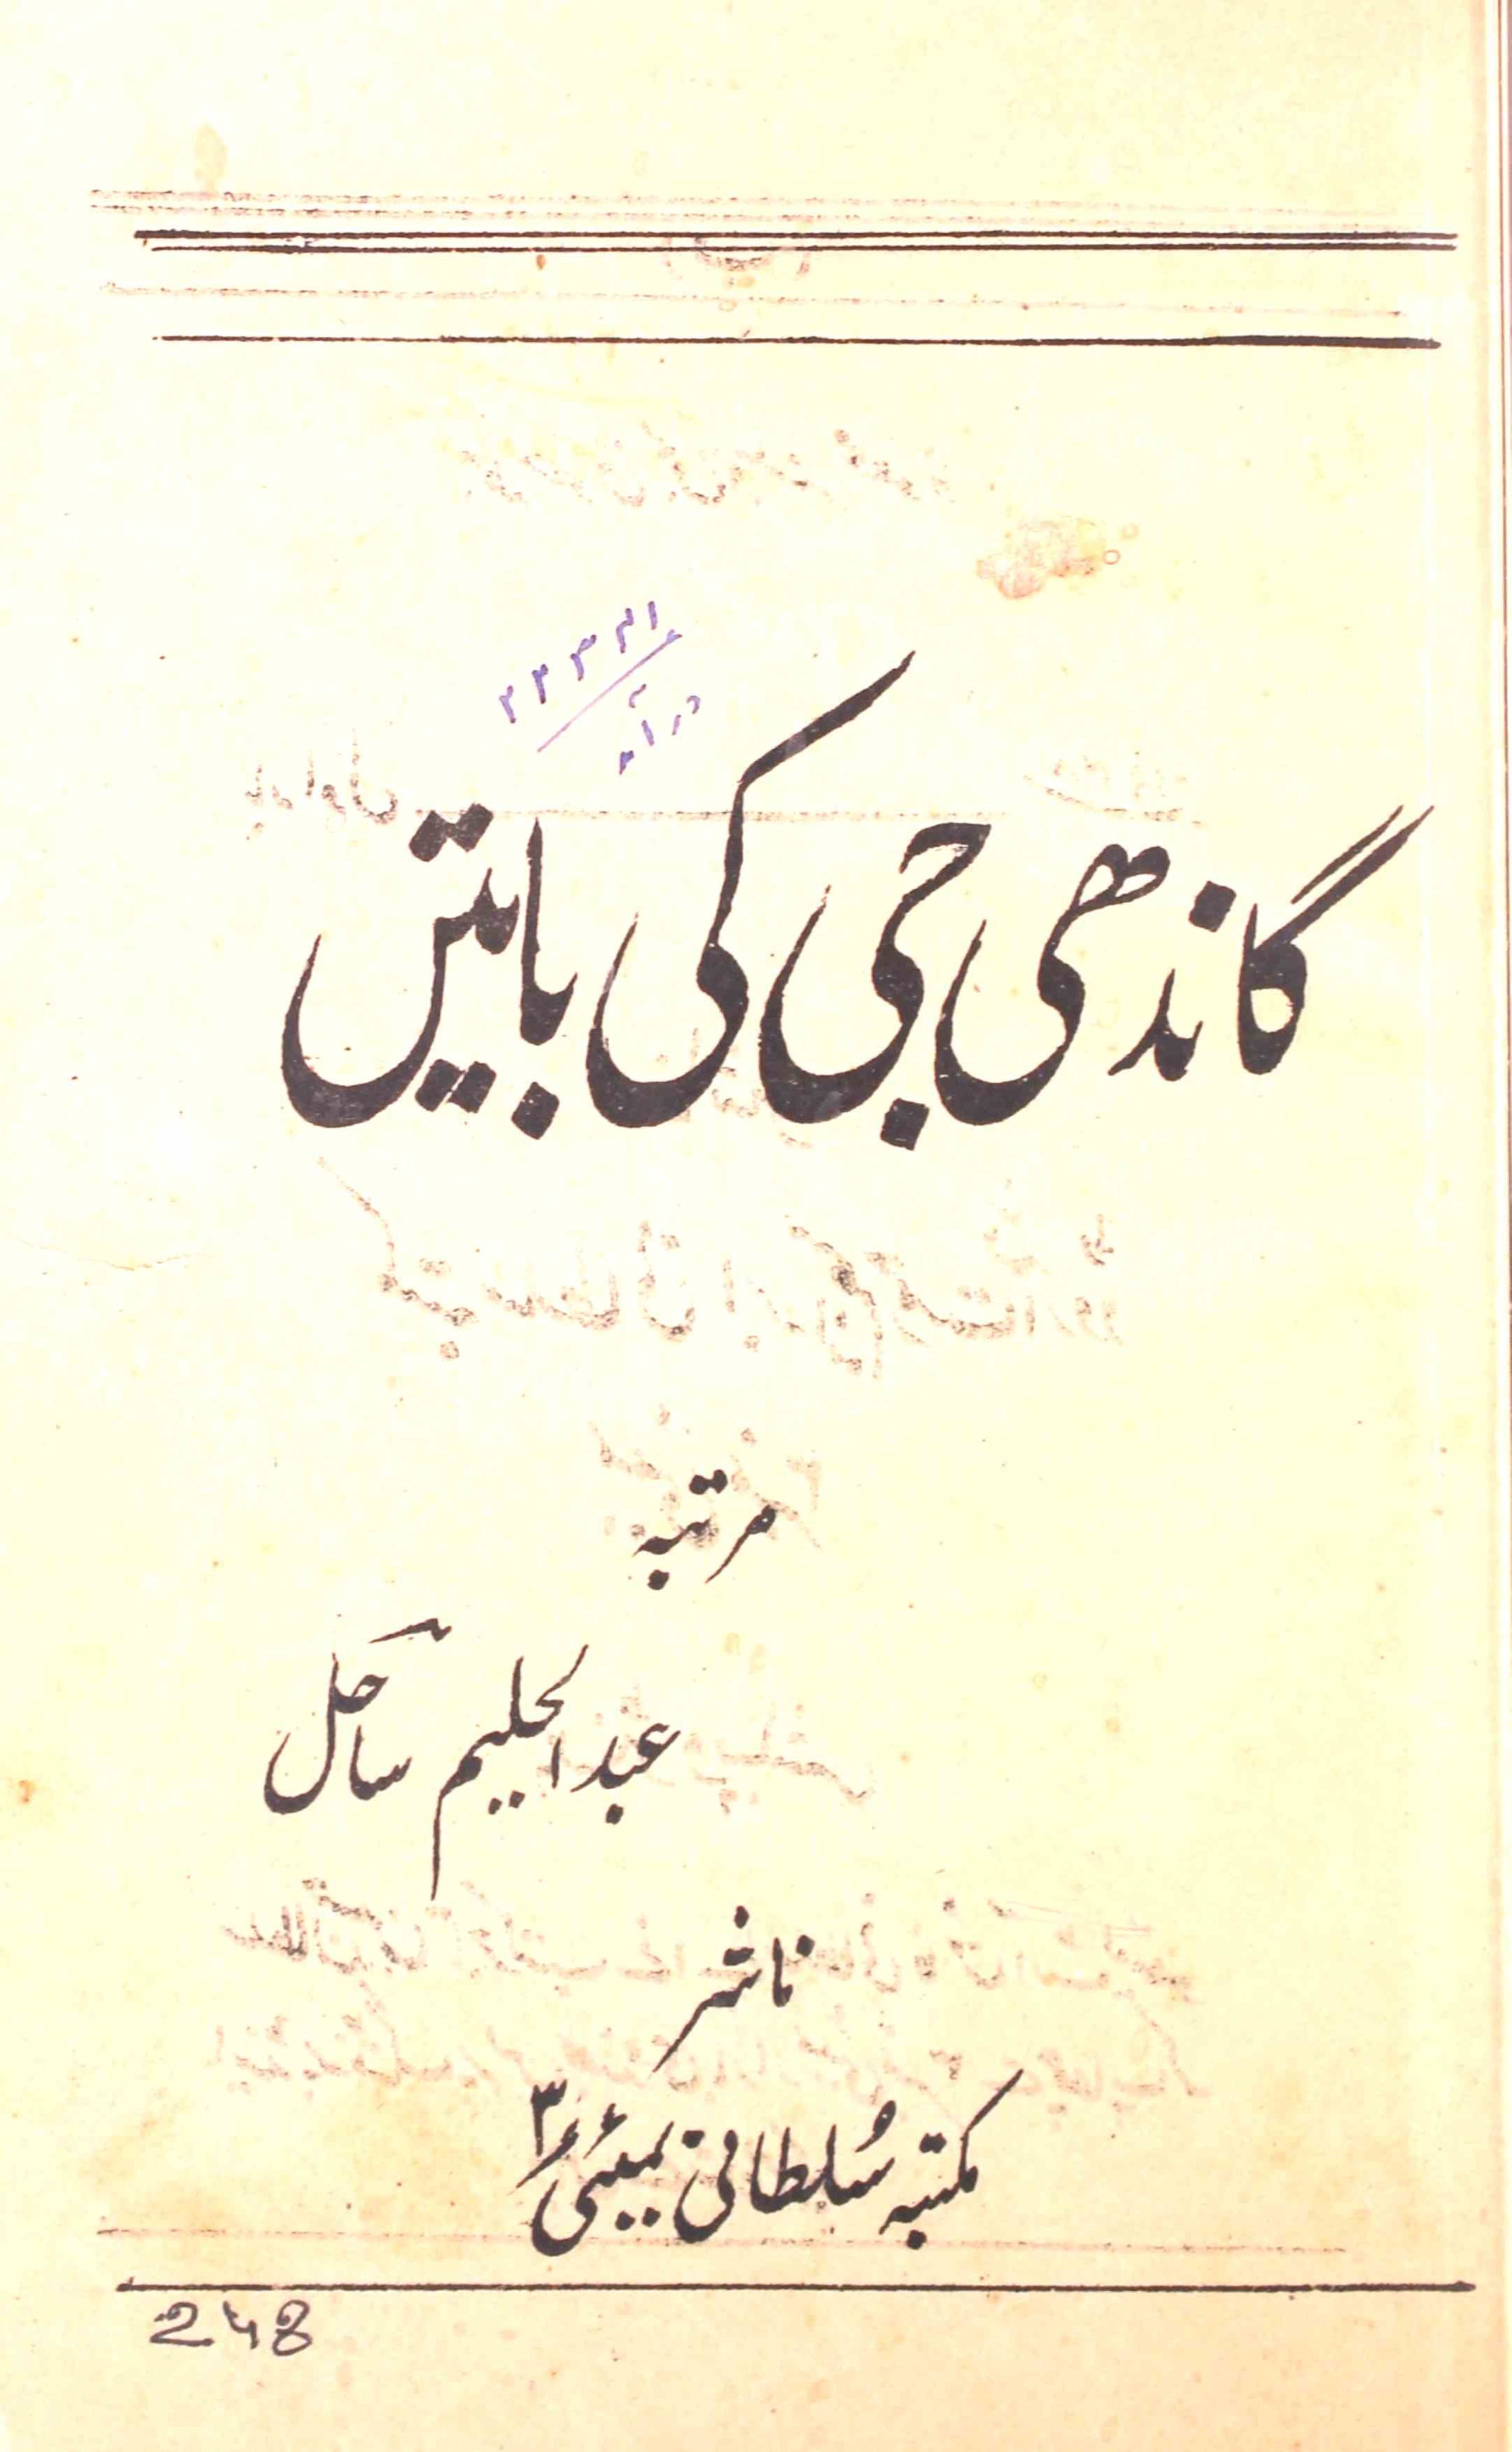 گاندھی جی کی باتیں
مرتبہ
عبدالحلیم ساحل
ناشر
مکتبہ سُلطانی بمبئی ۳
248